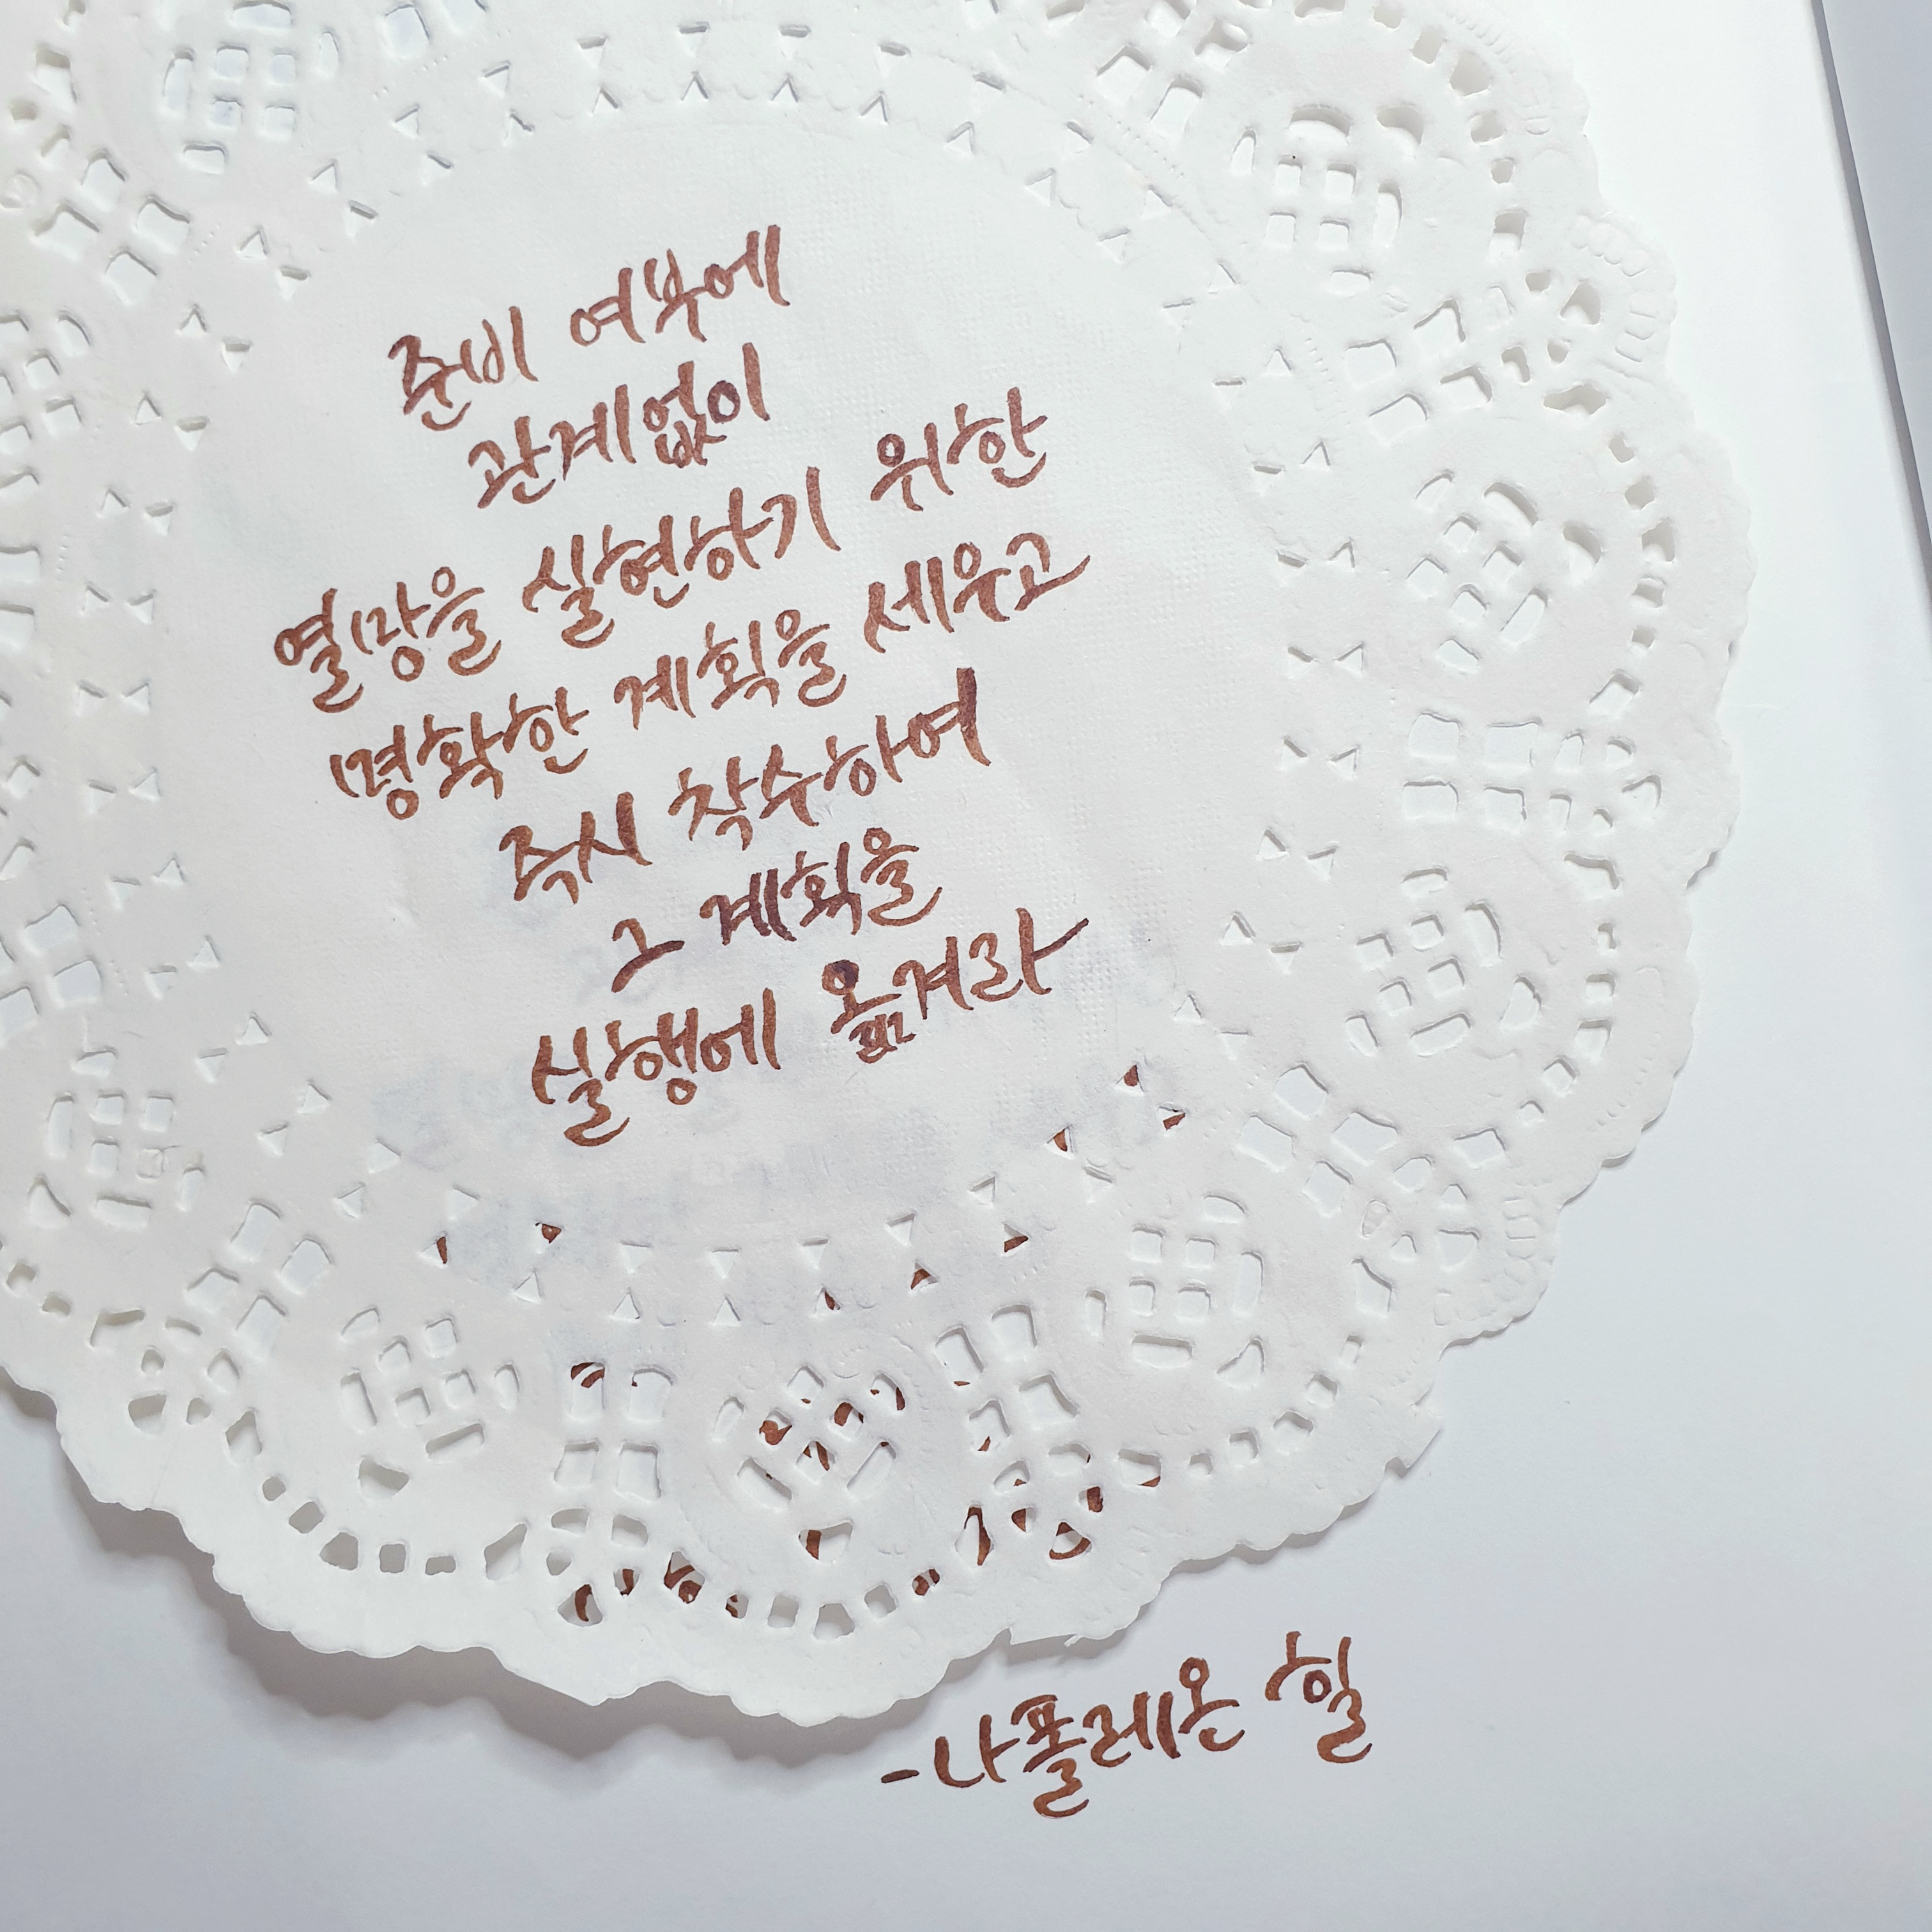 준비 여부에
관계없이
열망을 실현하기 위한
명확한 계획을 세우고
즉시 착수하여
그 계획을
실행에 옮겨라
-나폴레온 힐